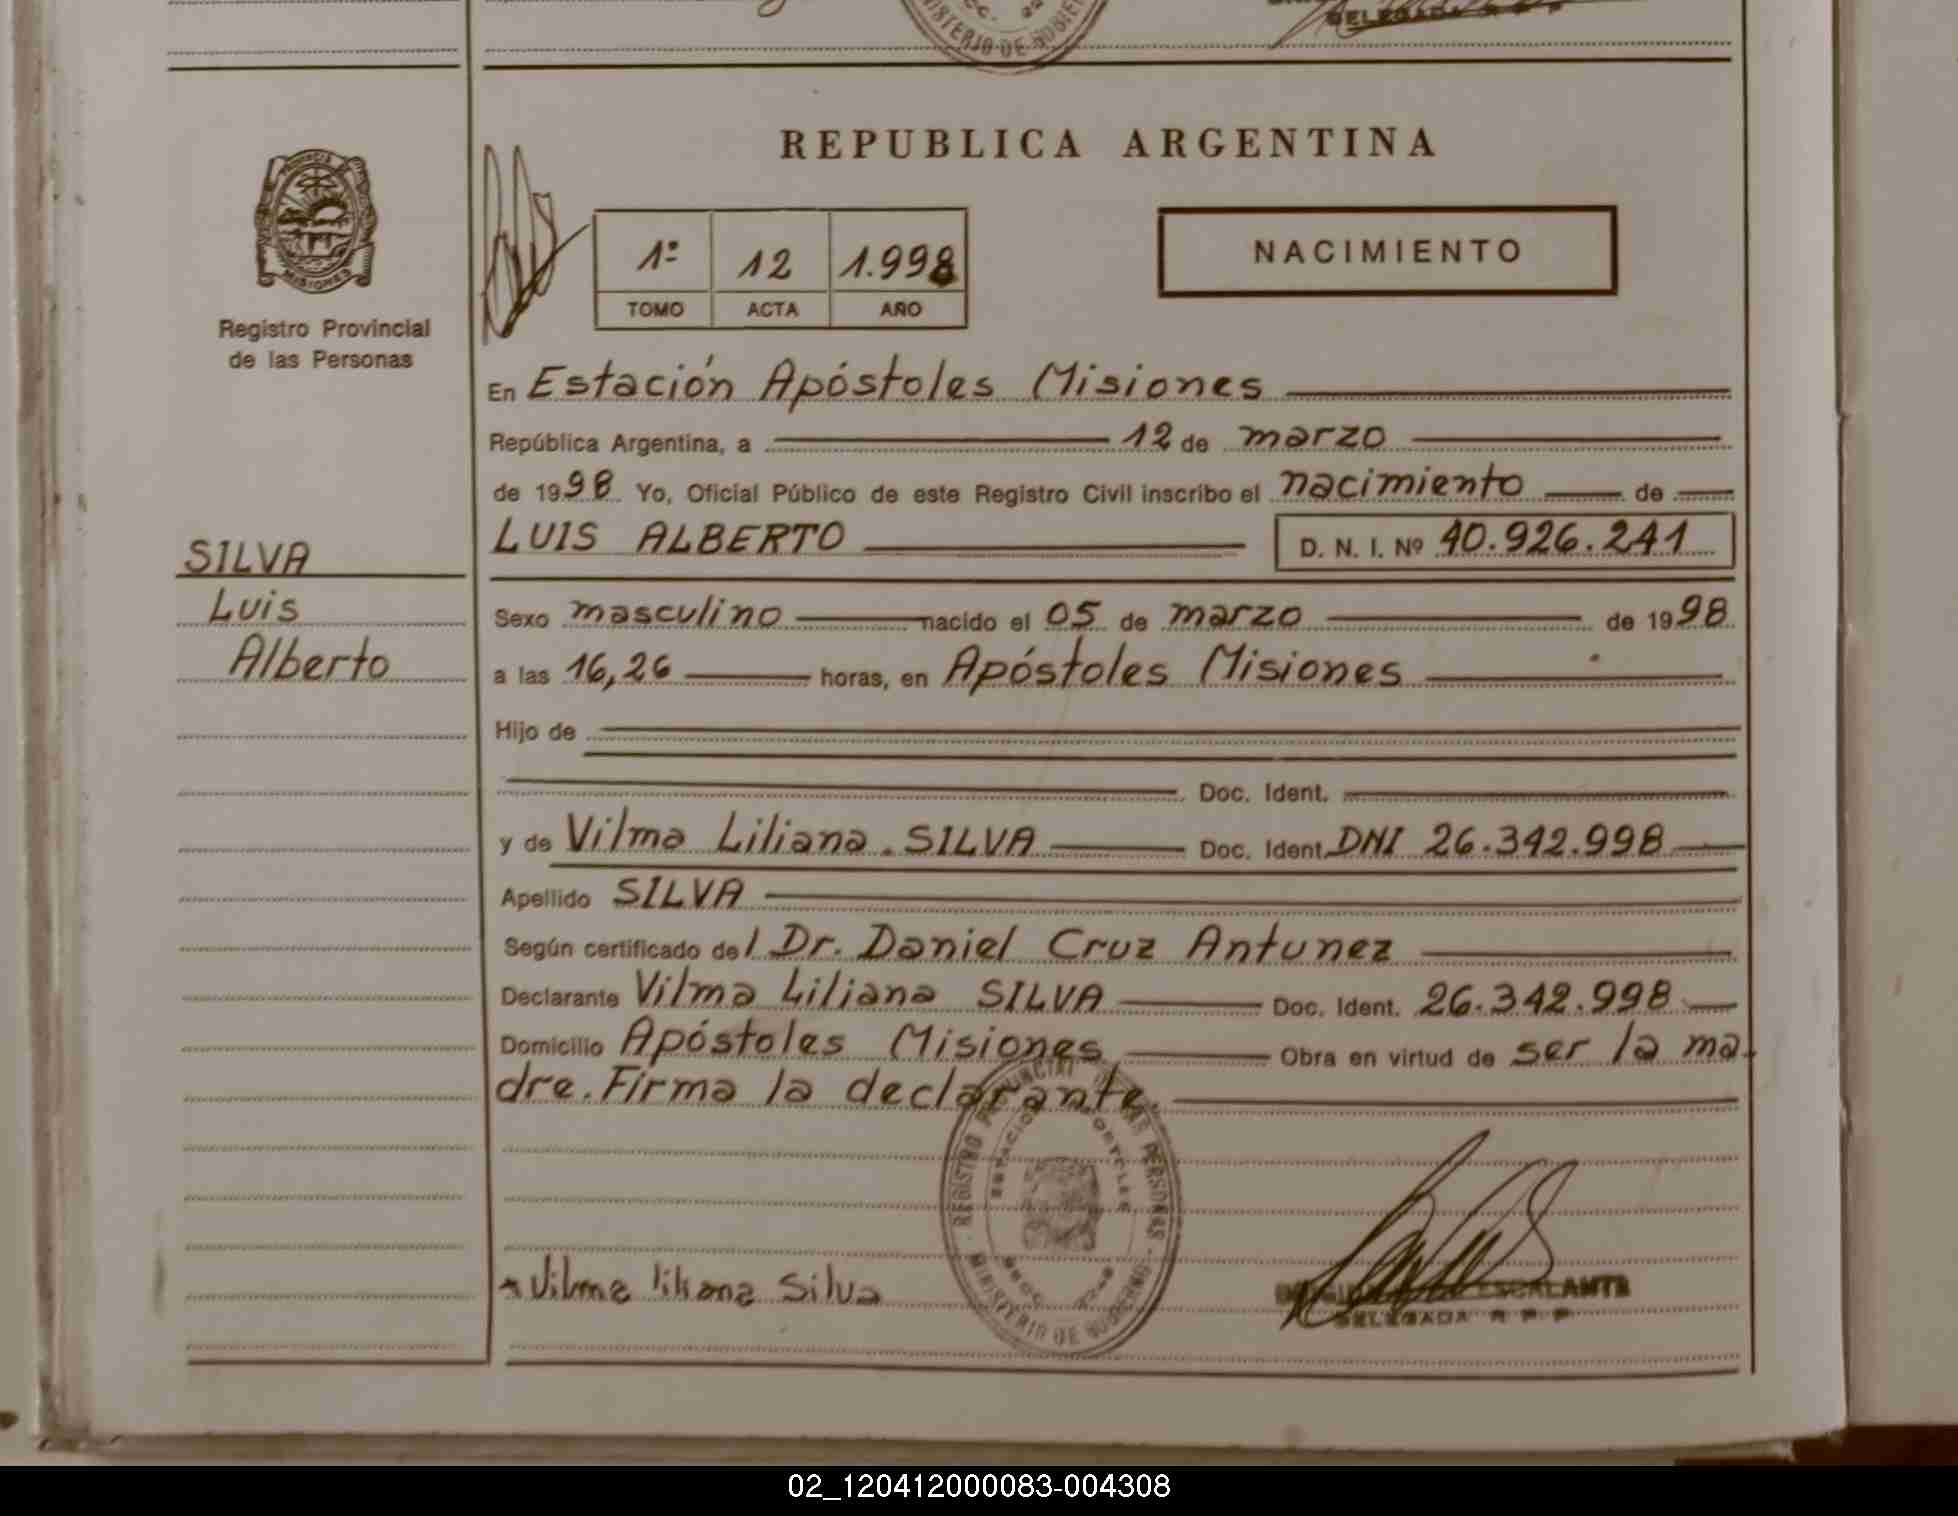 MINISTERIO DE GOBIERNO
DELEGADA R P P
REPUBLICA ARGENTINA
MISIONES
Registro Provincial
de las Personas
1º 12 1.998
TOMO ACTA AÑO
NACIMIENTO
En Estación Apóstoles Misiones
República Argentina, a 12 de marzo
de 1998 Yo, Oficial Público de este Registro Civil inscribo el nacimiento de
LUIS ALBERTO D. N. I. Nº 40.926.241
SILVA
Luis
Alberto
Sexo masculino nacido el 05 de marzo de 1998
a las 16,26 horas, en Apóstoles Misiones
Hijo de
Doc. Ident.
y de Vilma Liliana. SILVA Doc. Ident. DNI 26.342.998
Apellido SILVA
Según certificado del Dr. Daniel Cruz Antunez
Declarante Vilma Liliana SILVA Doc. Ident. 26.342.998
Domicilio Apóstoles Misiones Obra en virtud de ser la ma-
dre. Firma la declarante.
REGISTRO PROVINCIAL DE LAS PERSONAS
MINISTERIO DE GOBIERNO
Vilma liliana Silva
ESCALANTE
DELEGADA R P P
02_120412000083-004308